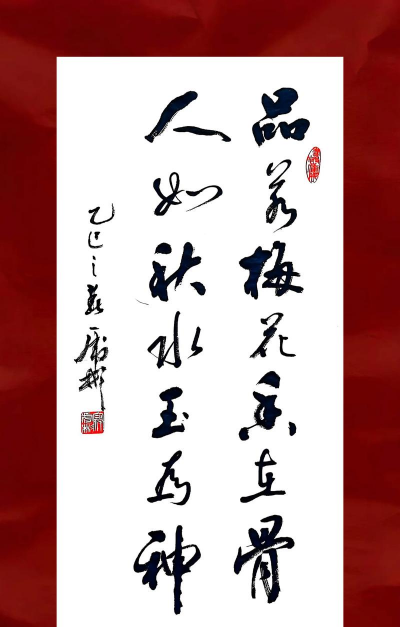 品若梅花香在骨
人如秋水玉为神
乙巳之